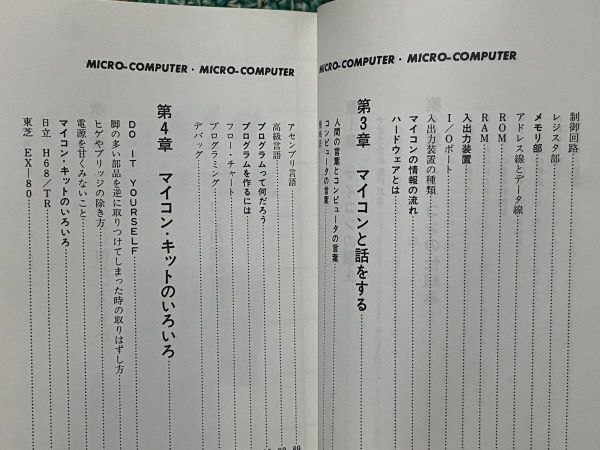 MICRO-COMPUTER・MICRO-COMPUTER
制御回路
レジスタ部
メモリ部
アドレス線とデータ線
ROM
RAM
入出力装置
I/Oポート
入出力装置の種類
マイコンの情報の流れ
ハードウェアとは
第3章 マイコンと話をする
人間の言葉とコンピュータの言葉
コンピュータの言葉
MICRO-COMPUTER・MICRO-COMPUTER
アセンブリ言語
高級言語
プログラムって何だろう
プログラムを作るには
フロー・チャート
プログラミング
デバッグ
第4章 マイコン・キットのいろいろ
DO IT YOURSELF
脚の多い部品を逆に取りつけてしまった時の取りはずし方
ヒゲやブリッジの除き方
電源を甘くみないこと
マイコン・キットのいろいろ
日立 H68/TR
東芝 EX-80